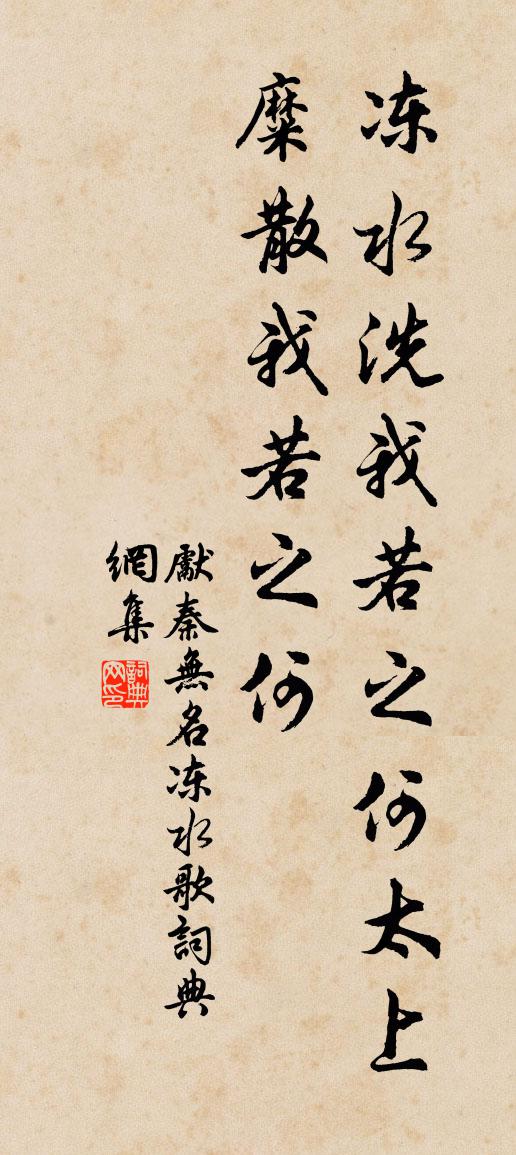 冻水洗我若之何太上
糜散我若之何
獻秦無名冻水歌詞典
網集
詞典網印